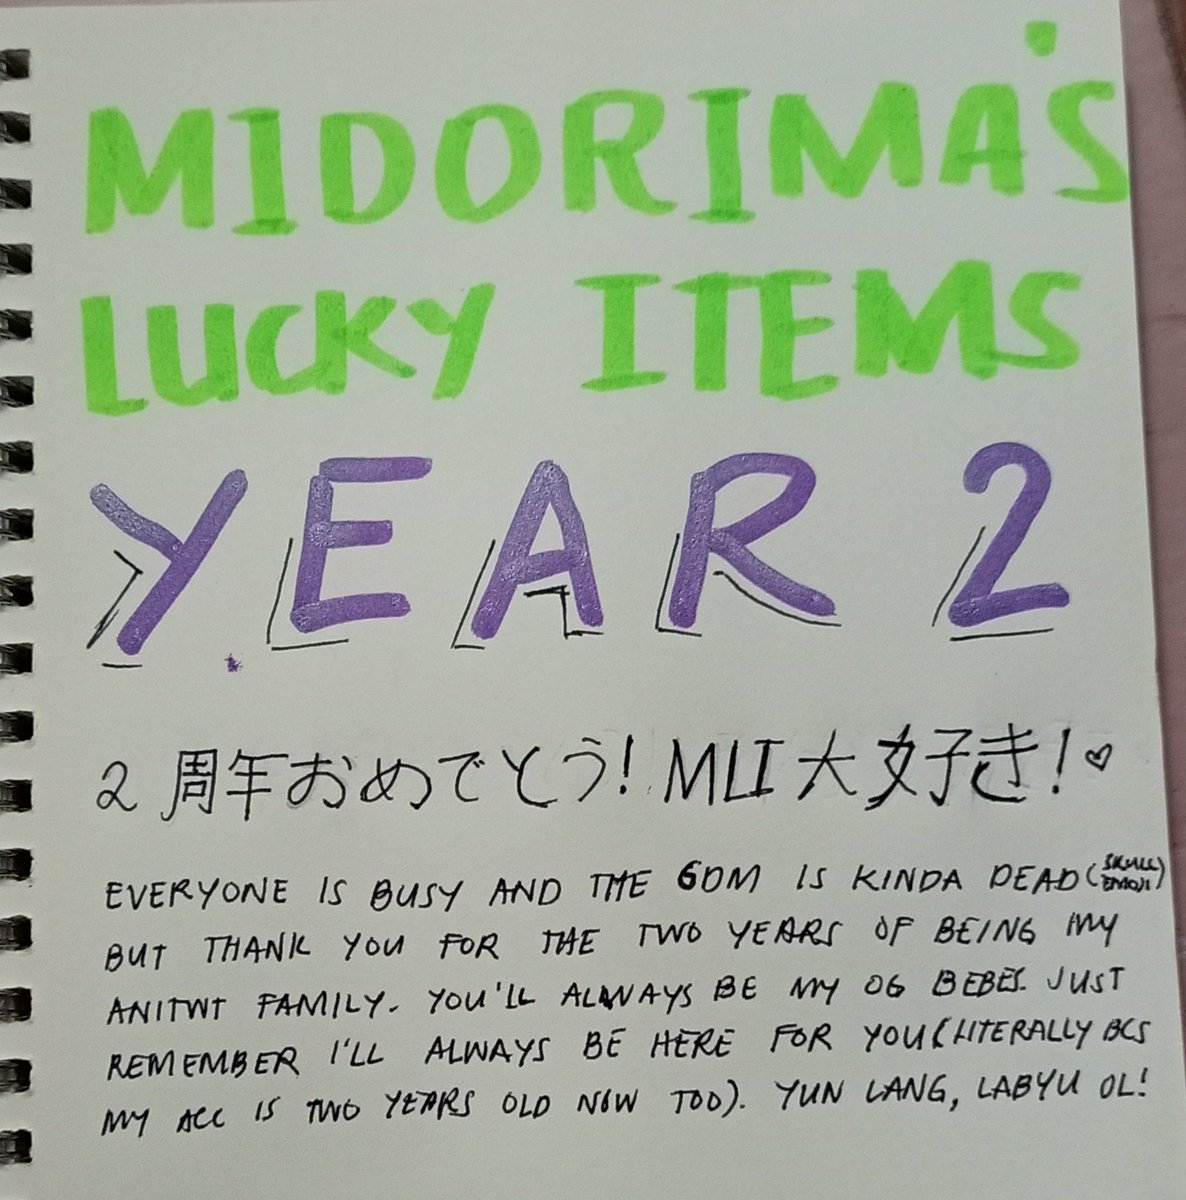 MIDORIMA'S
LUCKY ITEMS
YEAR 2
2周年おめでとう! MLI大好き!♡
EVERYONE IS BUSY AND THE GDM IS KINDA DEAD (SKULL EMOJI)
BUT THANK YOU FOR THE TWO YEARS OF BEING MY
ANITWT FAMILY. YOU'LL ALWAYS BE MY OG BEBES. JUST
REMEMBER I'LL ALWAYS BE HERE FOR YOU (LITERALLY BCS
MY ACC IS TWO YEARS OLD NOW TOO). YUN LANG, LABYU OL!